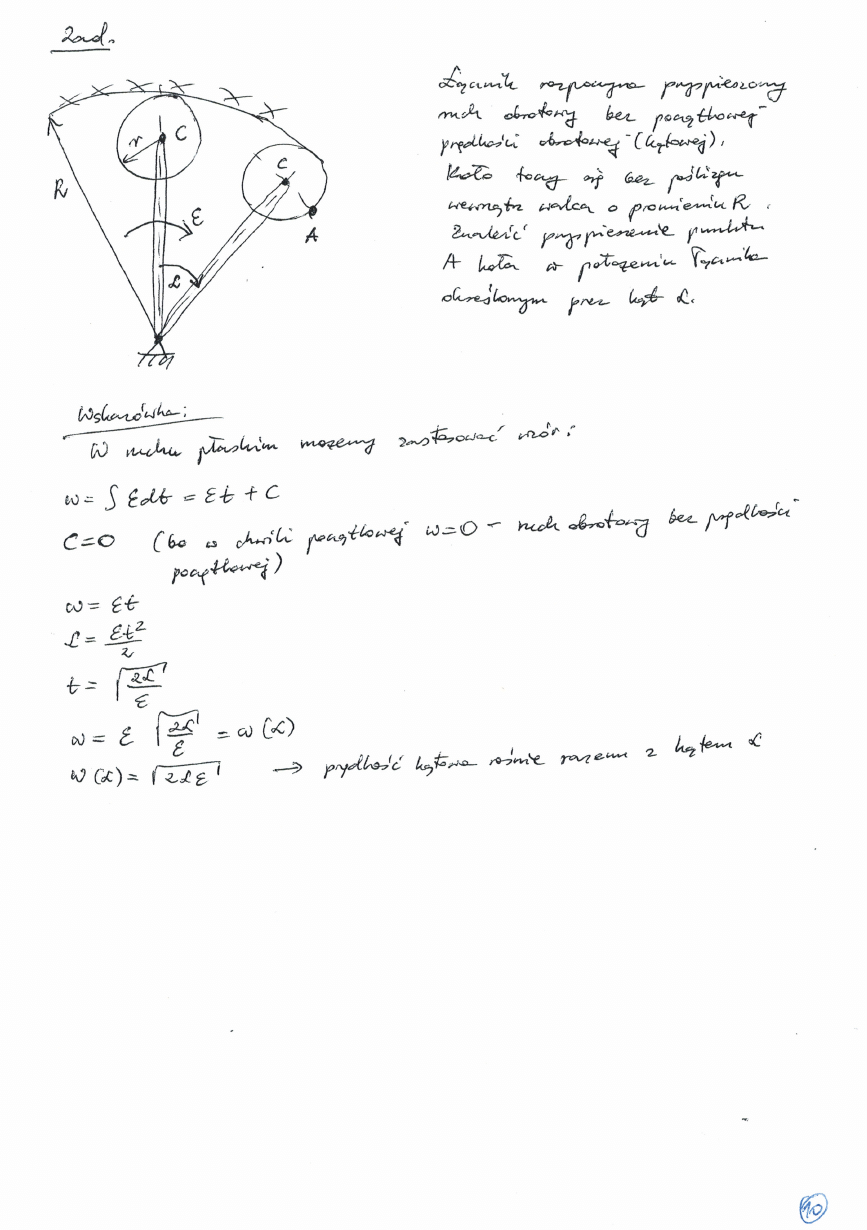 2 zad.
Łącznik rozpoczyna przyspieszony
ruch obrotowy bez początkowej
prędkości obrotowej (kątowej).
Koło toczy się bez poślizgu
wewnątrz walca o promieniu R.
Znaleźć przyspieszenie punktu
A koła w położeniu łącznika
określonym przez kąt α.
C
r
C
R
ε
A
α
Wskazówka:
W ruchu płaskim możemy zastosować wzór:
ω = ∫ εdt = εt + C
C=0 (bo w chwili początkowej ω=0 - ruch obrotowy bez prędkości
początkowej)
ω = εt
α = εt²/2
t = √(2α/ε)
ω = ε √(2α/ε) = ω(α)
ω(α) = √(2αε) → prędkość kątowa rośnie razem z kątem α
10